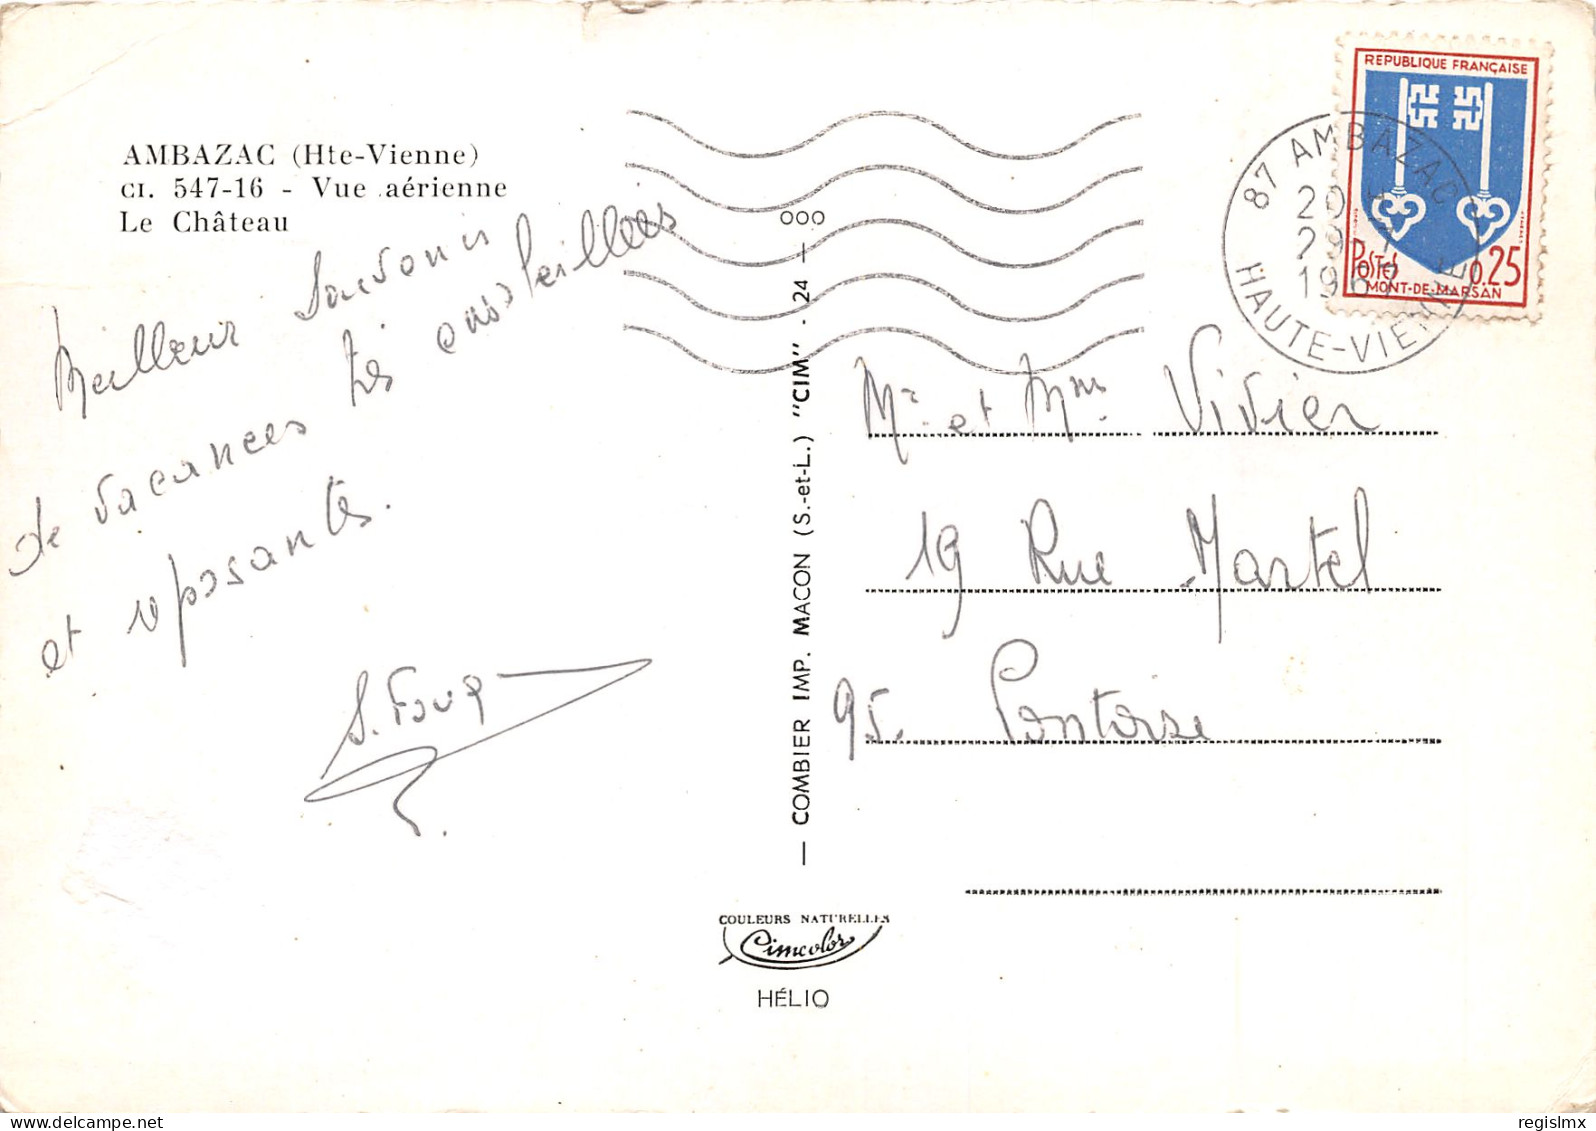 AMBAZAC (Hte-Vienne)
CI. 547-16 - Vue aérienne
Le Château
Meilleur Souvenir
de vacances très ensoleillées
et reposantes.
S. Fouq
— COMBIER IMP. MACON (S.-et-L.) "CIM" . 24 — ooo
COULEURS NATURELLES
Cimcolor
HÉLIO
REPUBLIQUE FRANÇAISE
POSTES 0.25
MONT-DE-MARSAN
87 AMBAZAC
20
29-7
196
HAUTE-VIENNE
Mr et Mme Vivier
19 Rue Martel
95. Pontoise
www.delcampe.net
regislmx